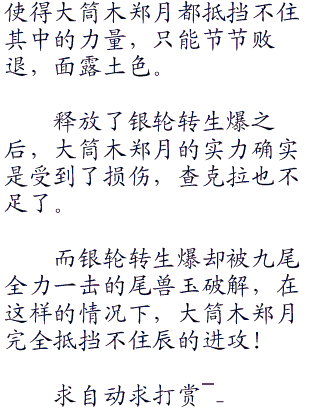 使得大筒木郑月都抵挡不住
其中的力量，只能节节败
退，面露土色。
释放了银轮转生爆之
后，大筒木郑月的实力确实
是受到了损伤，查克拉也不
足了。
而银轮转生爆却被九尾
全力一击的尾兽玉破解，在
这样的情况下，大筒木郑月
完全抵挡不住辰的进攻！
求自动求打赏¯_